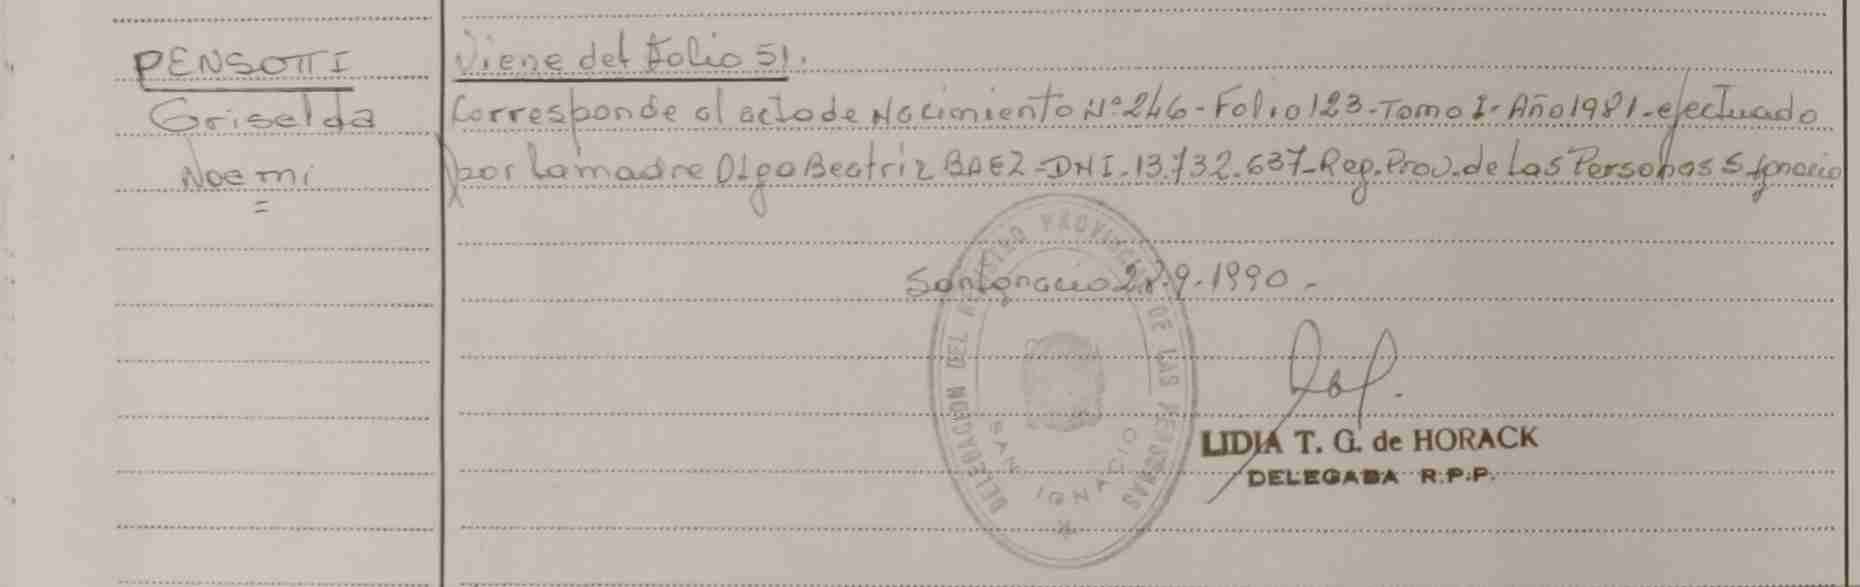 PENSOTTI
Griselda
Noemi
=
Viene del Folio 51.
Corresponde al acta de Nacimiento Nº 246 - Folio 123 - Tomo I - Año 1981 - efectuado
por la madre Olga Beatriz BAEZ - DNI. 13.732.637 - Reg. Prov. de Las Personas S. Ignacio
San Ignacio 28.9.1990.-
DELEGACION DEL REGISTRO PROVINCIAL DE LAS PERSONAS
SAN IGNACIO
LIDIA T. G. de HORACK
DELEGADA R.P.P.